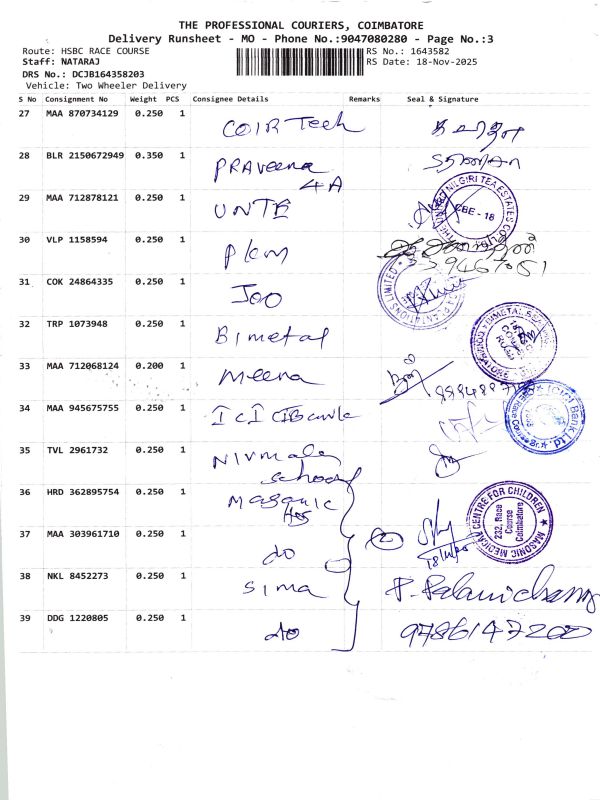 THE PROFESSIONAL COURIERS, COIMBATORE
Delivery Runsheet - MO - Phone No.:9047080280 - Page No.:3
Route: HSBC RACE COURSE
RS No.: 1643582
Staff: NATARAJ
RS Date: 18-Nov-2025
DRS No.: DCJB164358203
Vehicle: Two Wheeler Delivery
S No Consignment No Weight PCS Consignee Details Remarks Seal & Signature
27 MAA 870734129 0.250 1 COIR Tech
28 BLR 2150672949 0.350 1 PRAveena
4A
29 MAA 712878121 0.250 1 UNTE
CBE - 18
30 VLP 1158594 0.250 1
31 COK 24864335 0.250 1 Joo
32 TRP 1073948 0.250 1 Bimetal
33 MAA 712068124 0.200 1 Meena
34 MAA 945675755 0.250 1 ICICI Bank
35 TVL 2961732 0.250 1 Nirmala
school
36 HRD 362895754 0.250 1 Masonic
Hos
MASONIC MEDICAL CENTRE FOR CHILDREN
232, Race
Course
Coimbatore
37 MAA 303961710 0.250 1 do
2
38 NKL 8452273 0.250 1 Sima
39 DDG 1220805 0.250 1 do
9786147200